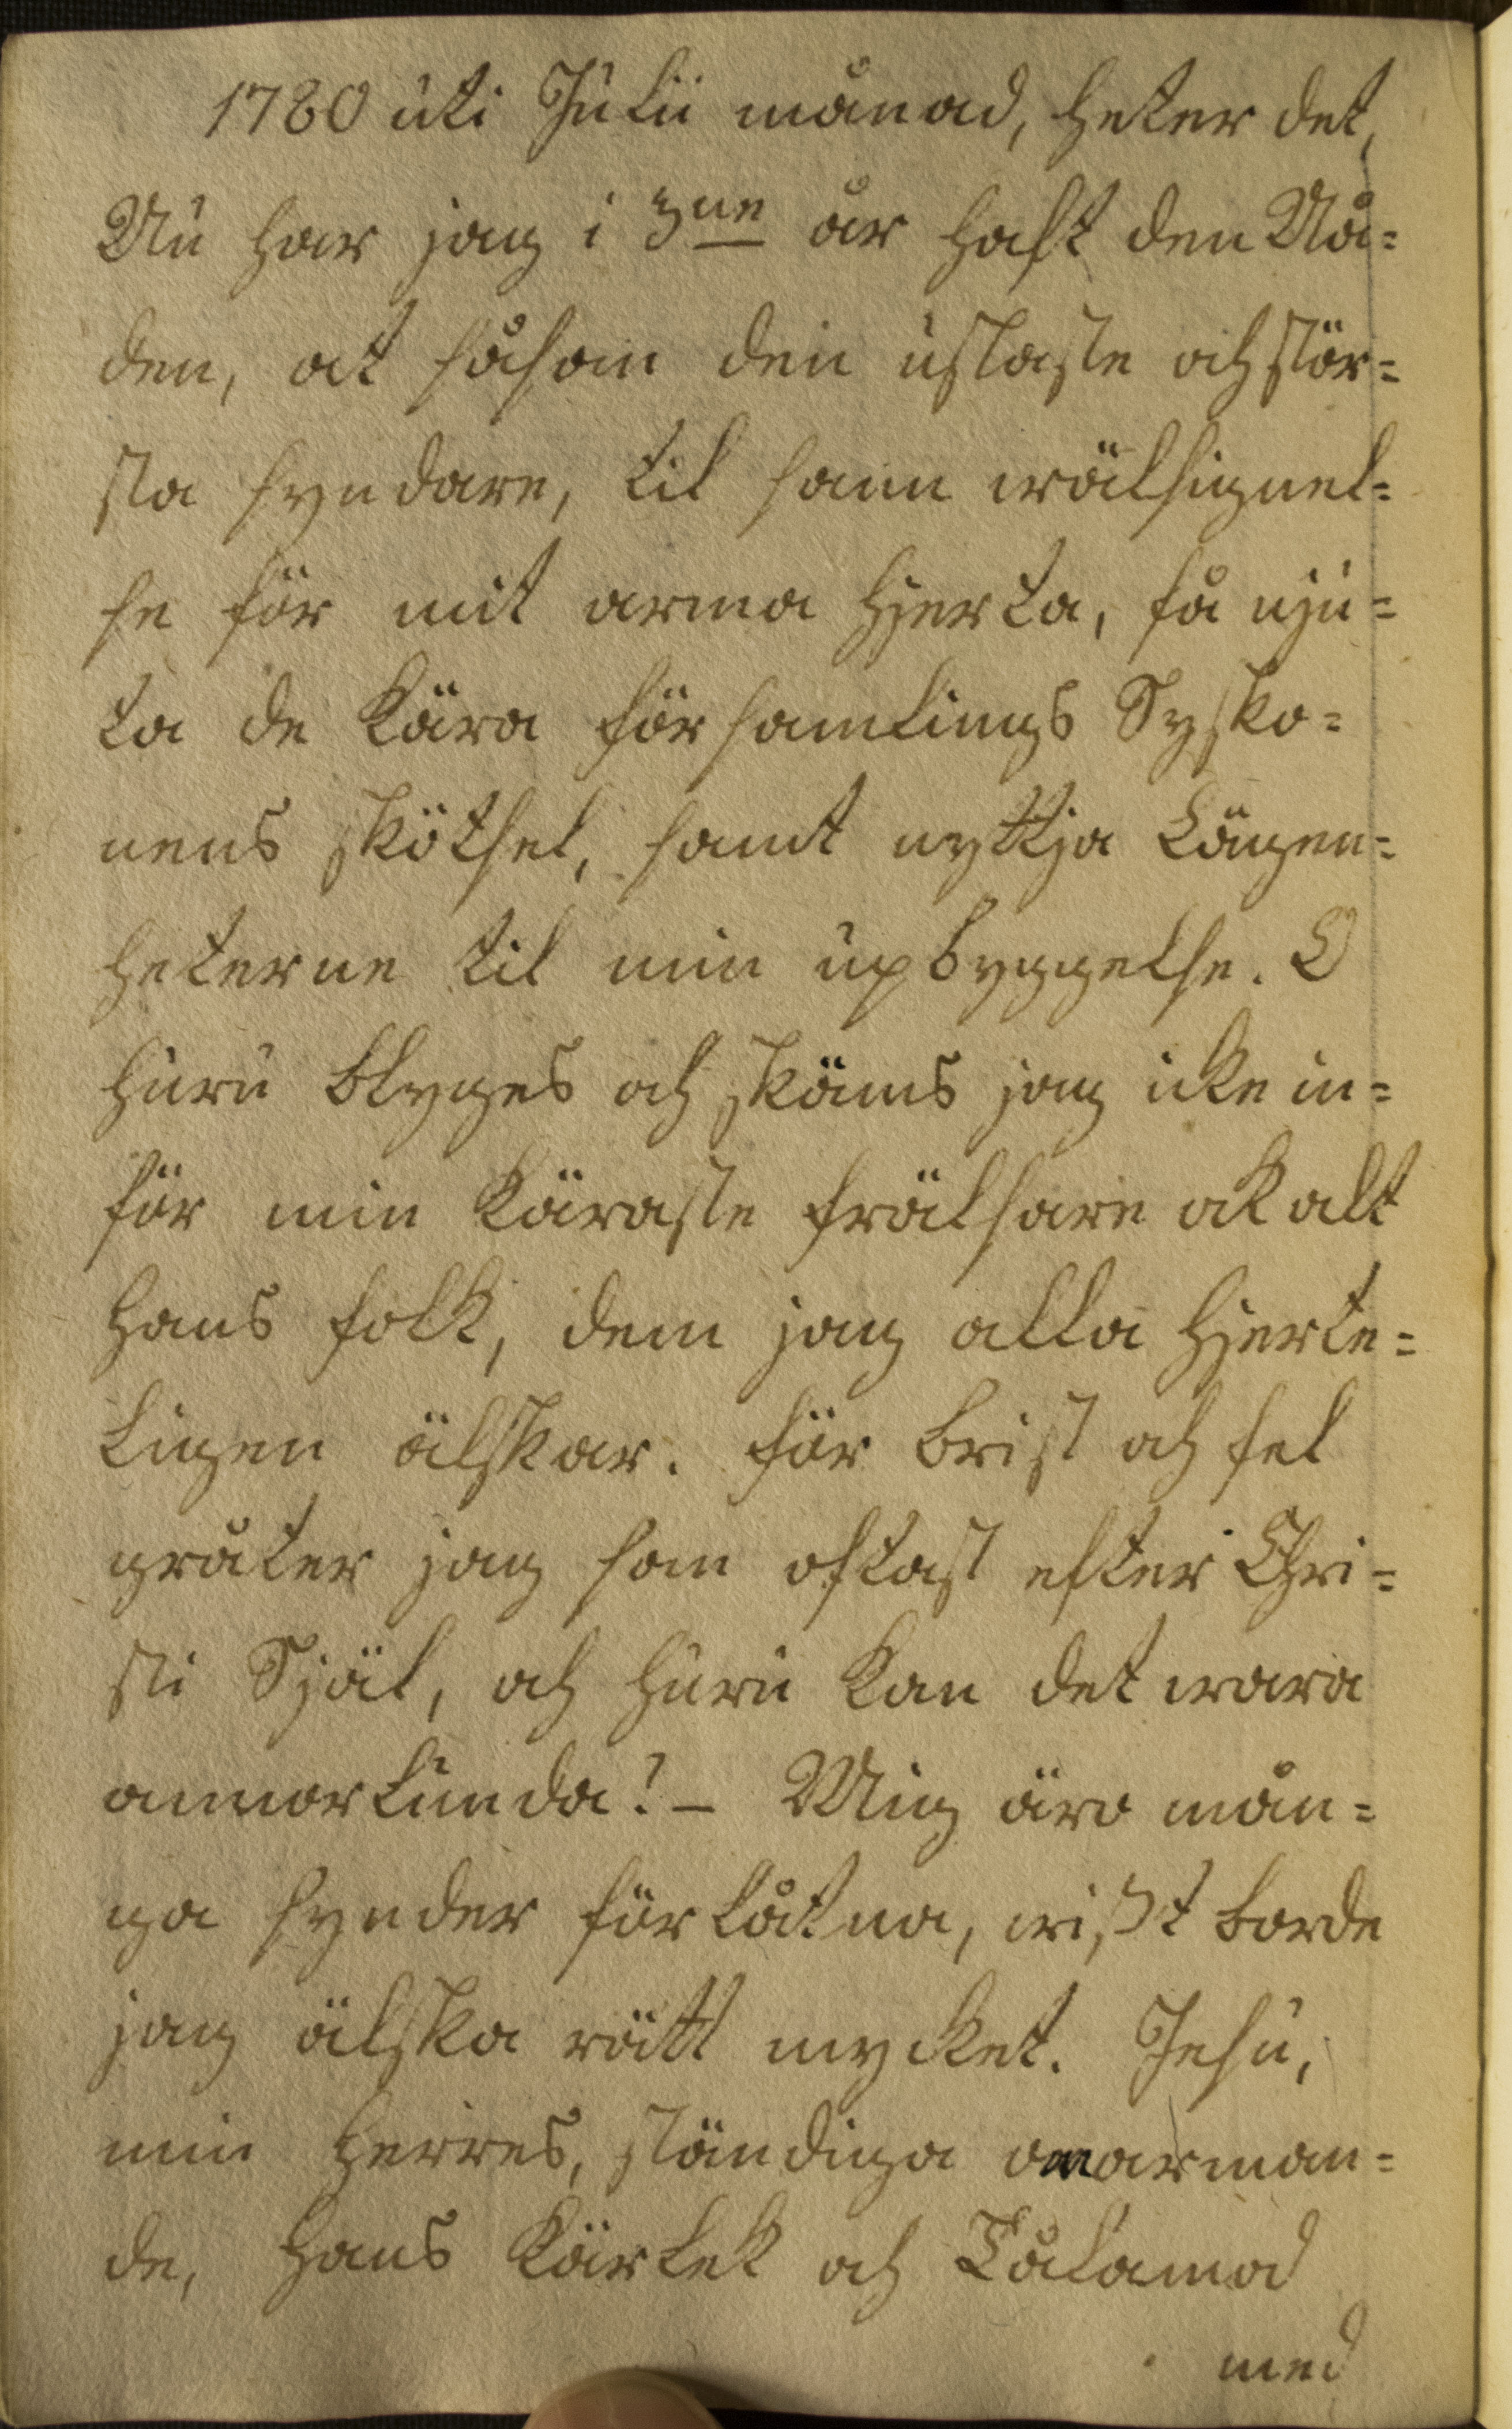 1780 uti Julii månad, heter det,
Nu har jag i 3ne år haft den Nå=
den, at såsom den uslaste och stör=
sta syndare, til sann wälsignel=
se för mit arma hjerta, få nju=
ta de kära församlings Sysko=
nens skötsel, samt nyttja Lägen=
heterne til min upbyggelse. O
huru blyges och skäms jag icke in=
för min käraste frälsare ock alt
hans folk, dem jag alla hjerte=
ligen älskar. för brist och fel
gråter jag som oftast efter Chri=
sti Själ, och huru kan det wara
annorlunda! – Mig äro mån=
ga synder förlåtna, wißt borde
jag älska rätt mycket. Jesu,
min Herres, ständiga omarman=
de, hans kärlek och Tålamod
med